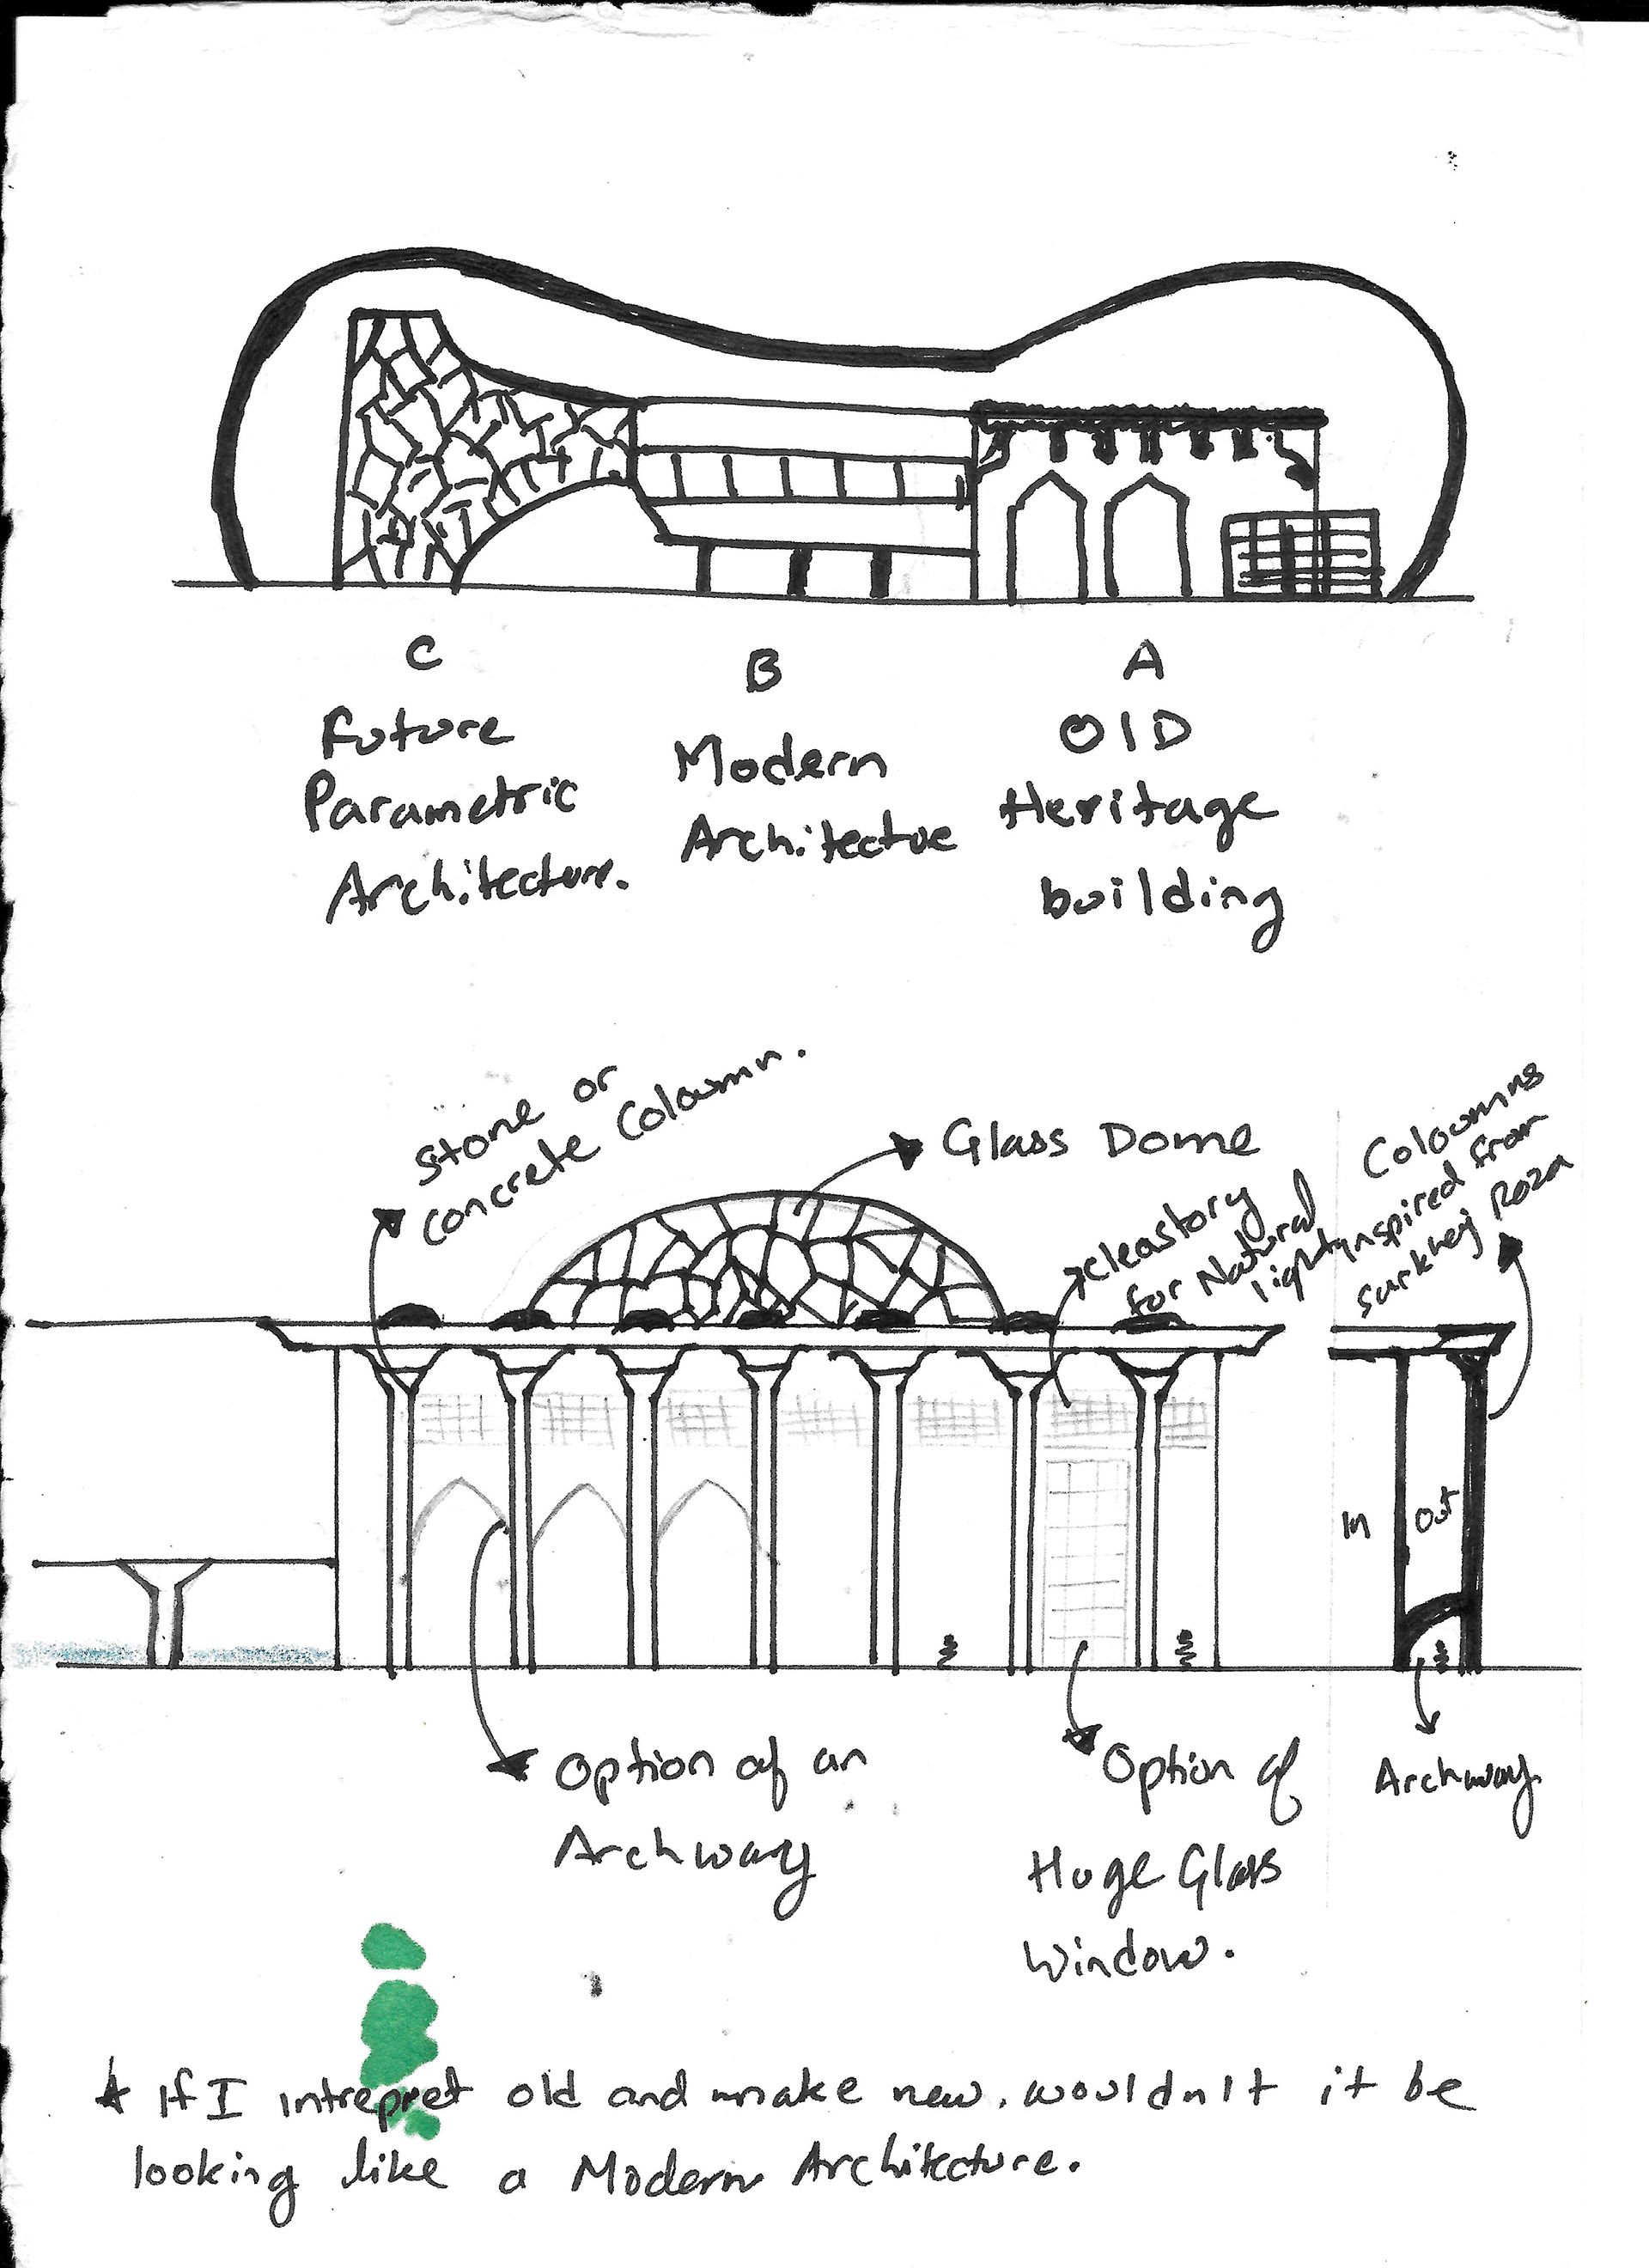 C
Future
Parametric
Architecture.
B
Modern
Architectue
A
OlD
Heritage
building
Stone or
Concrete Coloumn.
Glass Dome
cleastory
for Natural
light
Coloumns
inspired from
Sarkhej Roza
In
Out
Option of an
Archway
Option of
Huge Glass
Window.
Archway.
* If I intrepret old and make new, wouldn't it be
looking like a Modern Architecture.